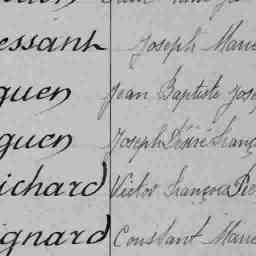 essant Joseph Marie
guen Jean Baptiste Jose
guen Joseph Désiré Franço
ichard Victor François Pie
ignard Constant Marie